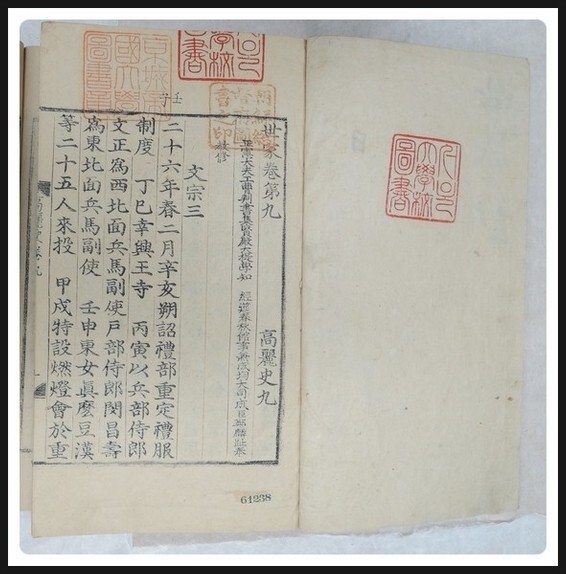 서울大學校圖書
京城帝國大學圖書章
世家卷第九 高麗史九
正憲大夫工曹判書集賢殿大提學知 經筵春秋館事兼成均大司成臣鄭麟趾奉
敎修
文宗三
壬子
二十六年春二月辛亥朔詔禮部重定禮服
制度 丁巳幸興王寺 丙寅以兵部侍郎
文正爲西北面兵馬副使戶部侍郎閔昌壽
爲東北面兵馬副使 壬申東女眞麽豆漢
等二十五人來投 甲戌特設燃燈會於重
高麗史卷九
61238